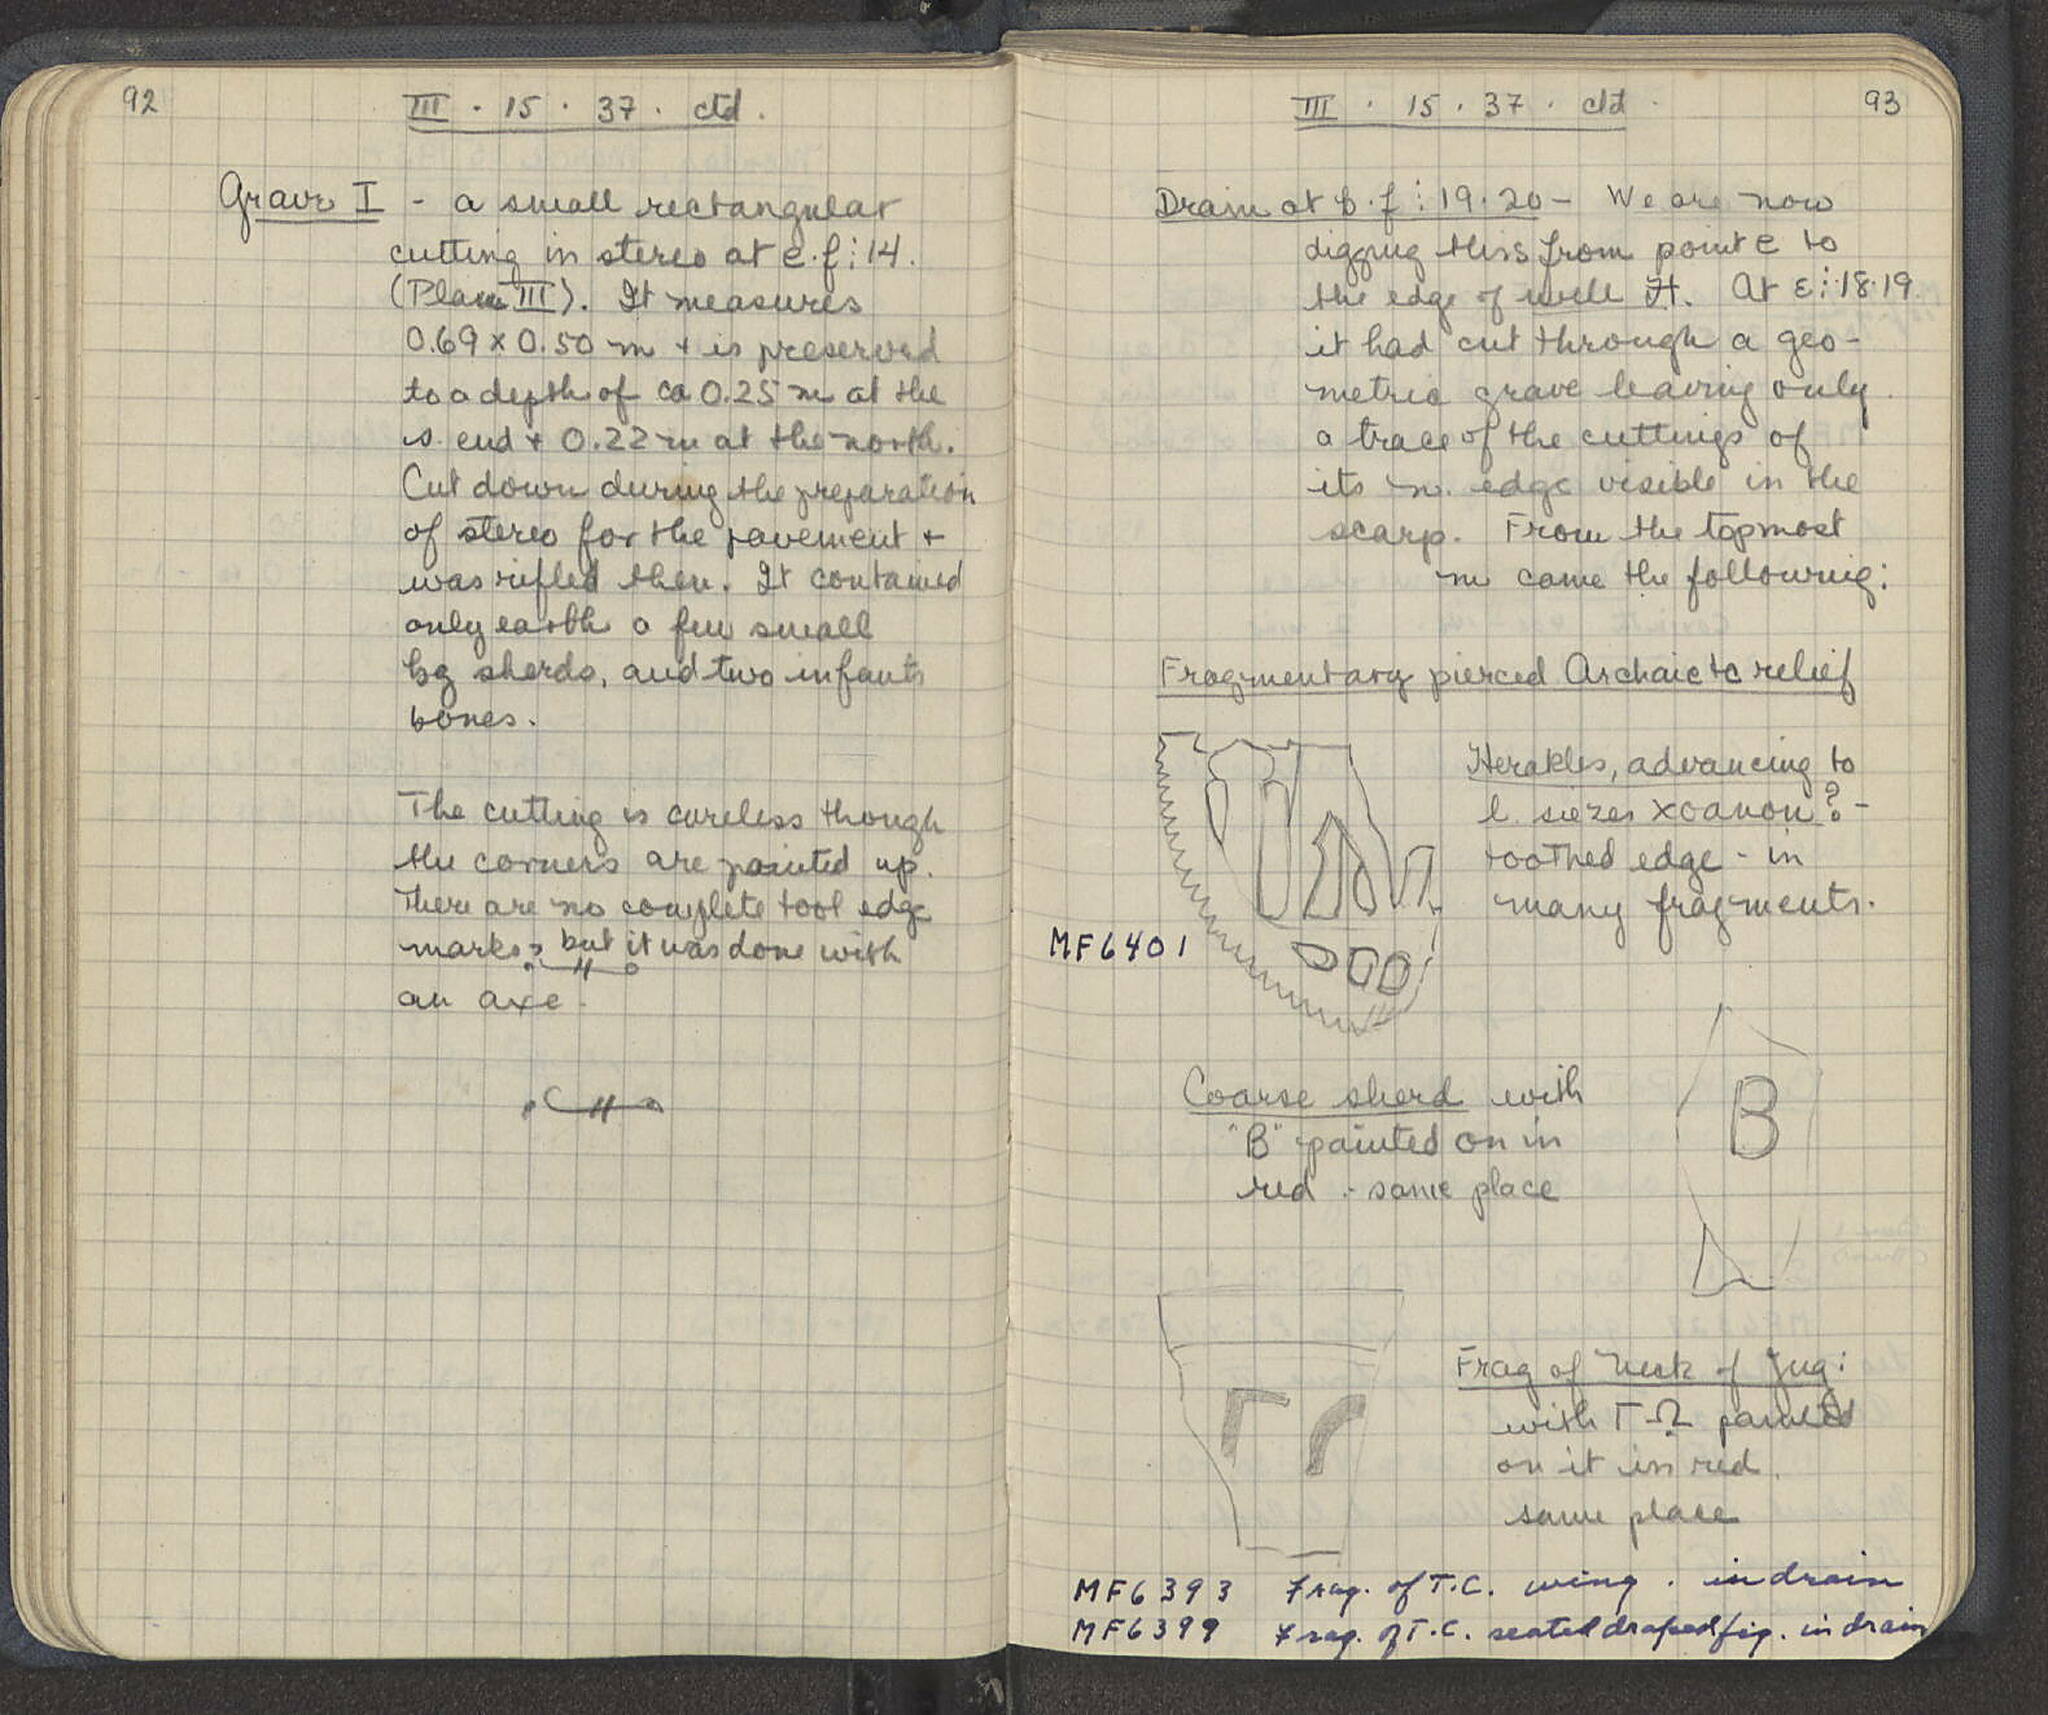 92
III · 15 · 37 · ctd.
Grave I - a small rectangular
cutting in stereo at e.f:14.
(Plan III). It measures
0.69 x 0.50 m + is preserved
to a depth of ca 0.25 m at the
s. end + 0.22 m at the north.
Cut down during the preparation
of stereo for the pavement +
was rifled then. It contained
only earth a few small
bg sherds, and two infants
bones.
The cutting is careless though
the corners are pointed up.
There are no complete tool edge
marks, but it was done with
an axe.
93
III · 15 · 37 · ctd
Drain at b.f:19.20 - We are now
digging this from point e to
the edge of well H. At E:18.19.
it had cut through a geo-
metric grave leaving only
a trace of the cuttings of
its n. edge visible in the
scarp. From the topmost
m came the following:
Fragmentary pierced Archaic tc relief
Herakles, advancing to
l. siezes xoanon? -
toothed edge - in
many fragments.
MF6401
B
Coarse sherd with
"B" painted on in
red - same place
Γ
Frag of Neck of Jug:
with Γ Ω painted
on it in red.
same place
MF6393 Frag. of T.C. wing. in drain
MF6399 Frag. of T.C. seated draped fig. in drain